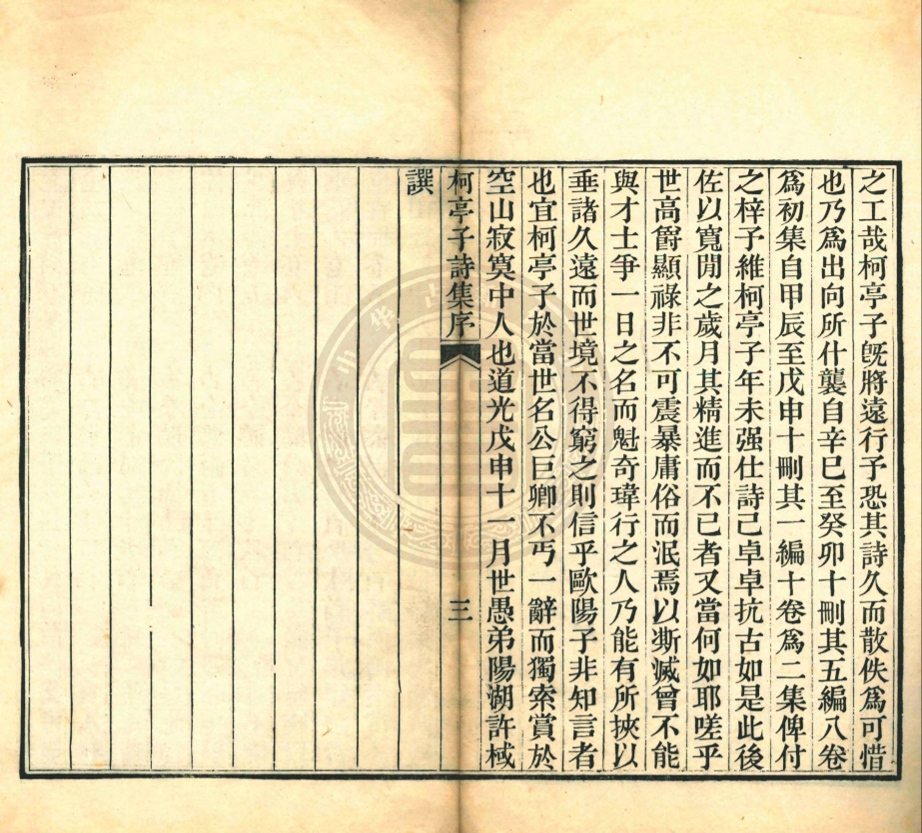 之工哉柯亭子旣將遠行予恐其詩久而散佚爲可惜
也乃爲出向所什襲自辛巳至癸卯十刪其五編八卷
爲初集自甲辰至戊申十刪其一編十卷爲二集俾付
之梓予維柯亭子年未强仕詩已卓卓抗古如是此後
佐以寬閒之歲月其精進而不已者又當何如耶嗟乎
世高爵顯祿非不可震暴庸俗而泯焉以澌滅曾不能
與才士爭一日之名而魁奇瑋行之人乃能有所挾以
垂諸久遠而世境不得窮之則信乎歐陽子非知言者
也宜柯亭子於當世名公巨卿不丐一辭而獨索賞於
空山寂寞中人也道光戊申十一月世愚弟陽湖許棫
柯亭子詩集序 三
譔